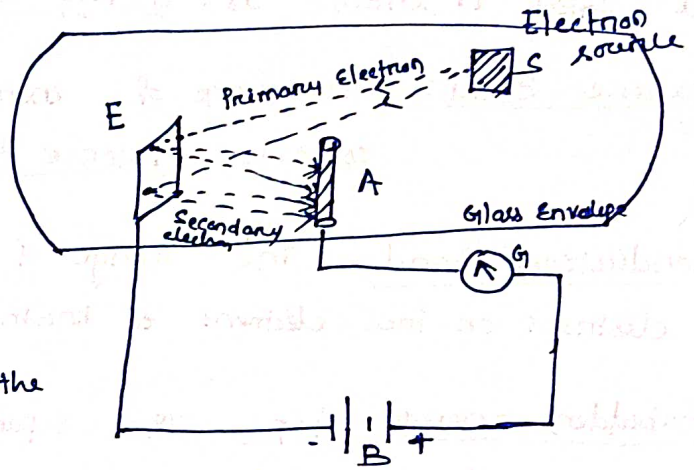 Electron
source
S
Primary Electron
E
A
Secondary
electron
Glass Envelope
G
the
- B +